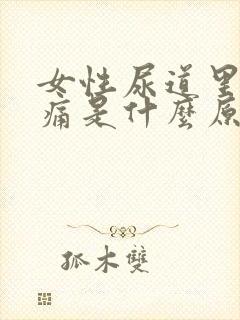 女性尿道里
痛是什麼原
孤木雙